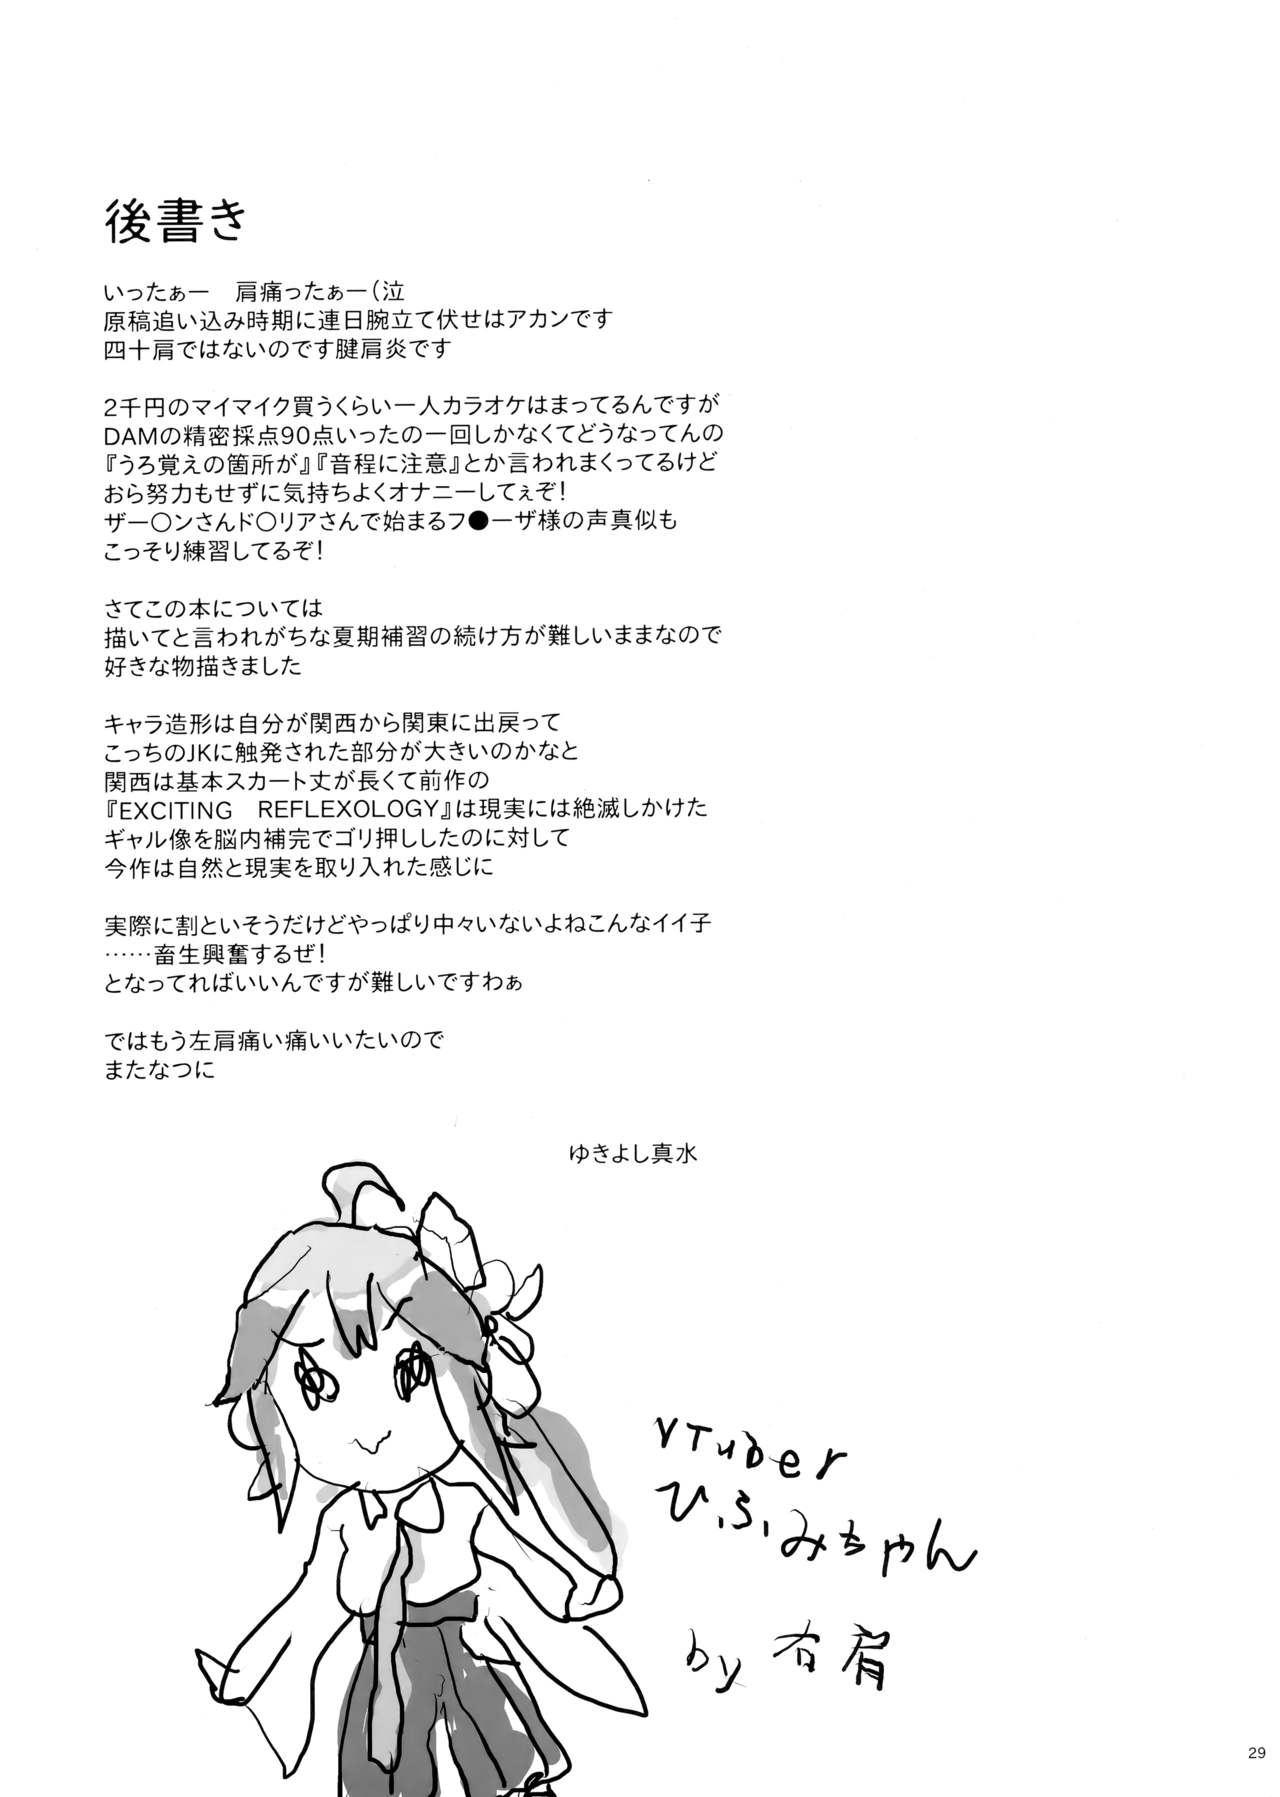 後書き
いったぁー　肩痛ったぁー（泣
原稿追い込み時期に連日腕立て伏せはアカンです
四十肩ではないのです腱肩炎です
2千円のマイマイク買うくらい一人カラオケはまってるんですが
DAMの精密採点90点いったの一回しかなくてどうなってんの
『うろ覚えの箇所が』『音程に注意』とか言われまくってるけど
おら努力もせずに気持ちよくオナニーしてぇぞ！
ザー〇ンさんド〇リアさんで始まるフ●ーザ様の声真似も
こっそり練習してるぞ！
さてこの本については
描いてと言われがちな夏期補習の続け方が難しいままなので
好きな物描きました
キャラ造形は自分が関西から関東に出戻って
こっちのJKに触発された部分が大きいのかなと
関西は基本スカート丈が長くて前作の
『EXCITING　REFLEXOLOGY』は現実には絶滅しかけた
ギャル像を脳内補完でゴリ押ししたのに対して
今作は自然と現実を取り入れた感じに
実際に割といそうだけどやっぱり中々いないよねこんなイイ子
……畜生興奮するぜ！
となってればいいんですが難しいですわぁ
ではもう左肩痛い痛いいたいので
またなつに
ゆきよし真水
VTuber
ひふみちゃん
by 右肩
29